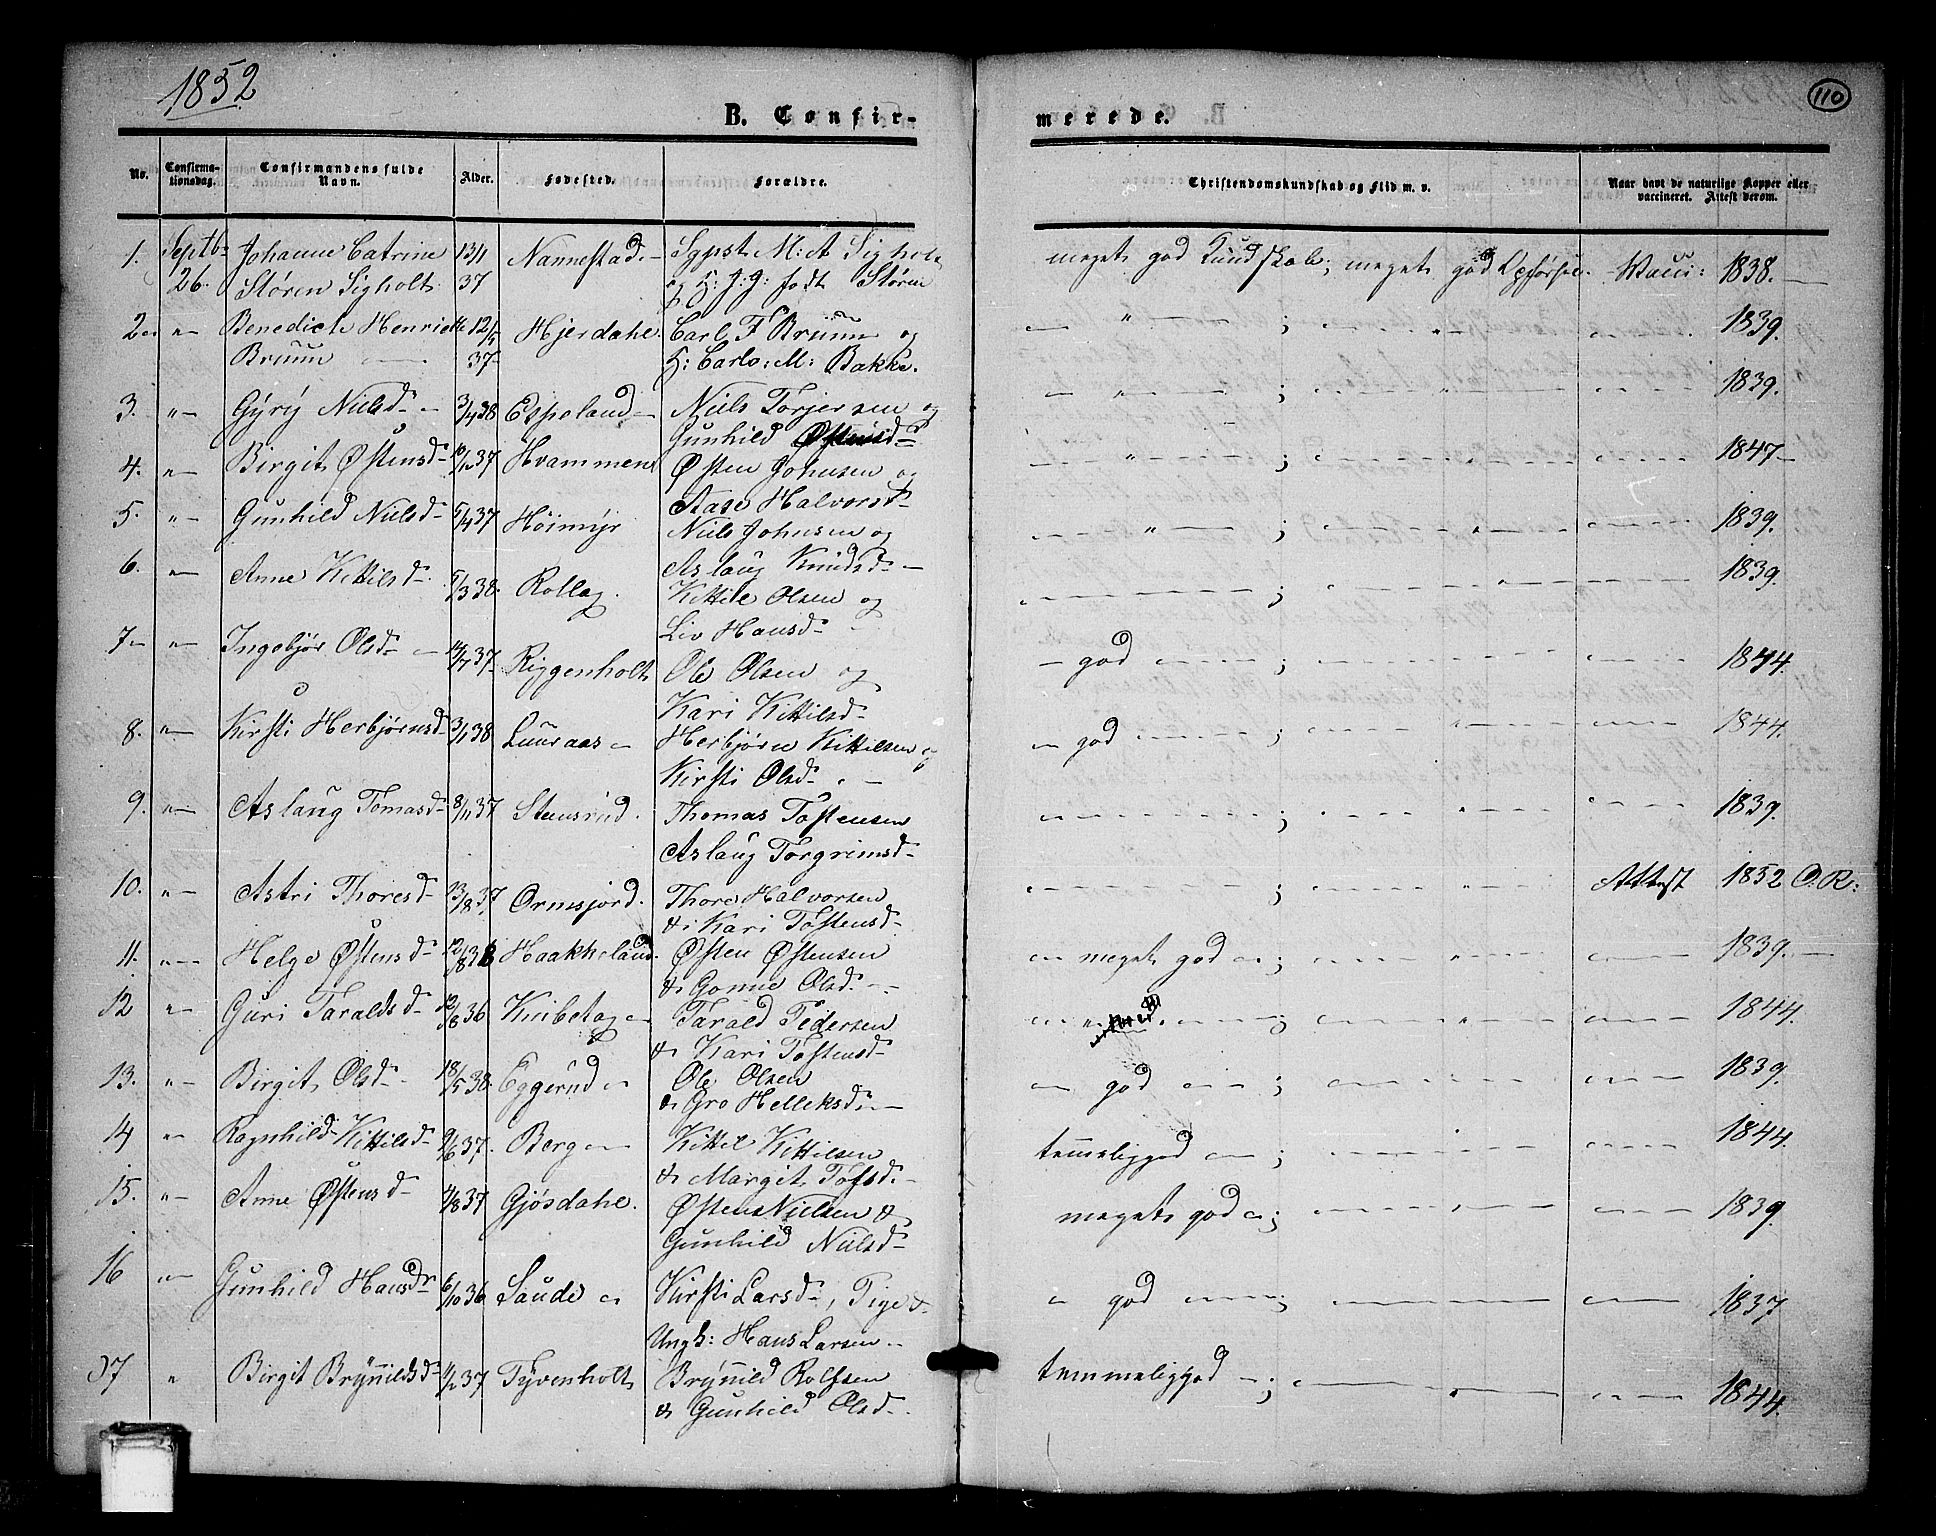 1852
110
B. Confir-
merede.
No.
Confirma-
tionsdag.
Confirmandens fulde
Navn.
Alder.
Fødested.
Forældre.
Christendomskundskab og Flid m. v.
Naar havt de naturlige Kopper eller
vaccineret. Attest derom.
1. Septb. Johanne Catrine 13/1 Nannestad M: Sigholt
26. Støren Sigholt. 37 og født Støren
meget god Kundskab; meget god Opførsel. Vacci: 1838.
2. " Benedicte Henriette 12/5 Hjerdahl. Carl F Bruun og
Bruun 37 H: M: Bakke.
" ; " 1839.
3. " Gyry Nielsd 3/4 38 Espeland Niels Torjersen og
Gunhild Østensd
" ; " 1839.
4. " Birgit Østensd 37 Hvammen Østen Johnsen og
Aase Halvorsd
" ; " 1847
5. " Gunhild Nielsd 37 Høimyr Niels Johnsen og
Aslaug Knudsd
" ; " 1839.
6. " Anne Kittilsd. 5/3 38. Rollag. Kittil Olsen og
Liv Hansd
; " 1839.
7 " Ingebjør Olsd 37 Riggenholt Ole Olsen og
Kari Kittilsd
god ; 1844.
8. " Kirsti Herbjørnsd 3/1 38 Luuraas Herbjørn Kittilsen og
Kirsti Olsd
god ; " 1844.
9. " Aslaug Tomasd 8/11 37 Steensrud. Thomas Tostensen
Aslaug Torgrimsd
; " 1839.
10. " Astri Thoresd 13/8 37 Ormsjord. Thore Halvorsen
& Kari Tostensd
; " Attest 1852 O. R:
11. " Helge Østensd Haakkeland. Østen Østensen
& Gonne Olsd
meget god ; " 1839.
12 " Guri Taraldsd 12/8 36 Kiribetag Tarald Pedersen
& Kari Tostensd
; " 1844.
13. " Birgit Olsd 18/5 38. Eggerud Ole Olsen
& Gro Helleksd
god ; 1839.
14 " Ragnhild Kittilsd 9/6 37. Berg Kittel Kittilsen
& Margit Tofsd
temmelig god ; 1844.
15. " Anne Østensd 4/8 37 Gjøsdahl. Østen Nielsen &
Gunhild Nielsd
meget god ; 1839.
16 " Gunhild Hansd 6/10 36 Saude Kirsti Larsd, Pige &
Ungk: Hans Larsen
god ; 1837
17 " Birgit Brynildsd 11/2 37 Tyvenholt Brynild Rolfsen
& Gunhild Olsd
temmelig god ; 1844.